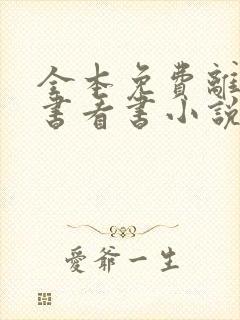 全本免費離
書看書小說
愛爺一生